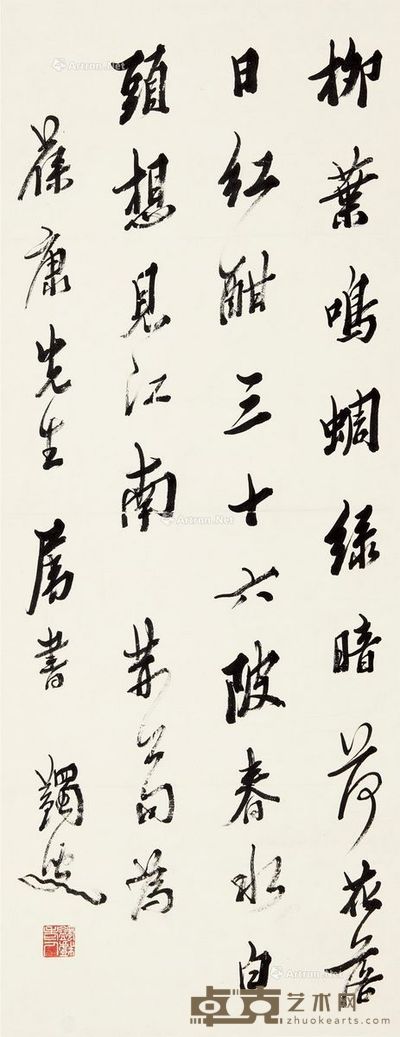 柳葉鳴蜩綠暗荷花落
日紅酣三十六陂春水白
頭想見江南 荊公句為
葆康先生屬書 蠲叟
Artron.Net
卓克艺术网
www.zhuokearts.com